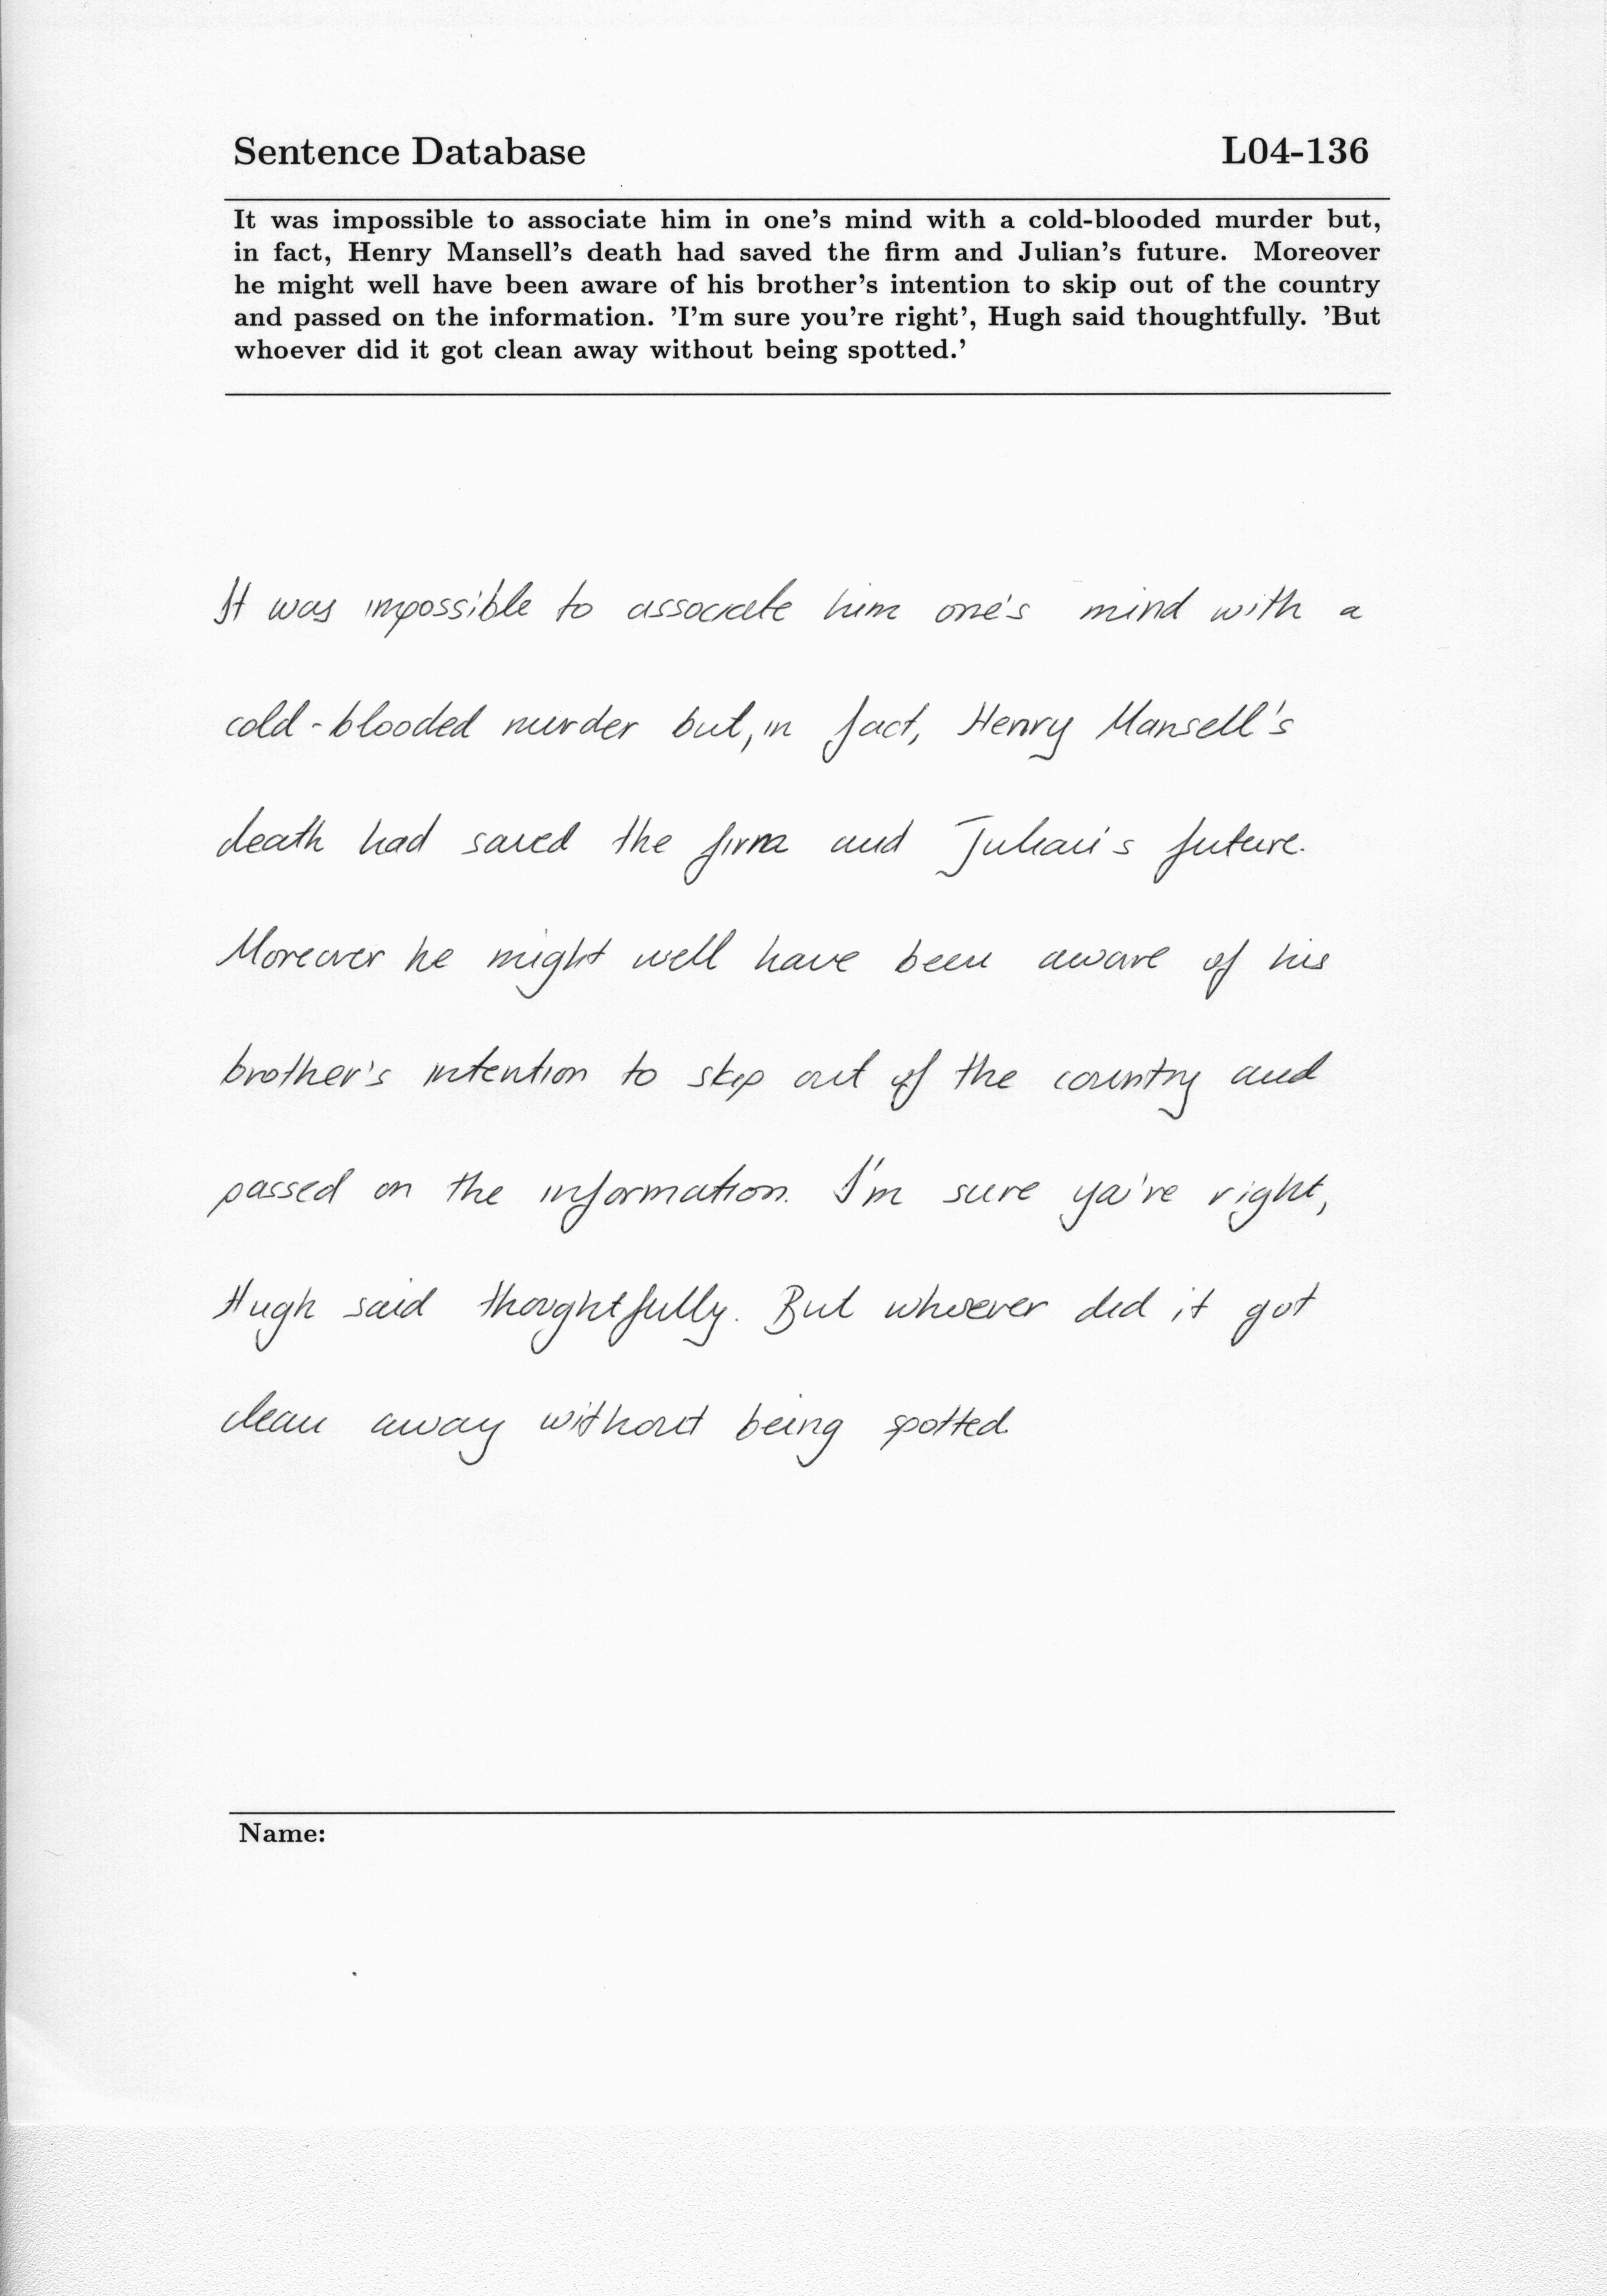 Sentence Database L04-136
It was impossible to associate him in one's mind with a cold-blooded murder but,
in fact, Henry Mansell's death had saved the firm and Julian's future. Moreover
he might well have been aware of his brother's intention to skip out of the country
and passed on the information. 'I'm sure you're right', Hugh said thoughtfully. 'But
whoever did it got clean away without being spotted.'
It was impossible to associate him one's mind with a
cold-blooded murder but, in fact, Henry Mansell's
death had saved the firm and Julian's future.
Moreover he might well have been aware of his
brother's intention to skip out of the country and
passed on the information. I'm sure you're right,
Hugh said thoughtfully. But whoever did it got
clean away without being spotted.
Name: